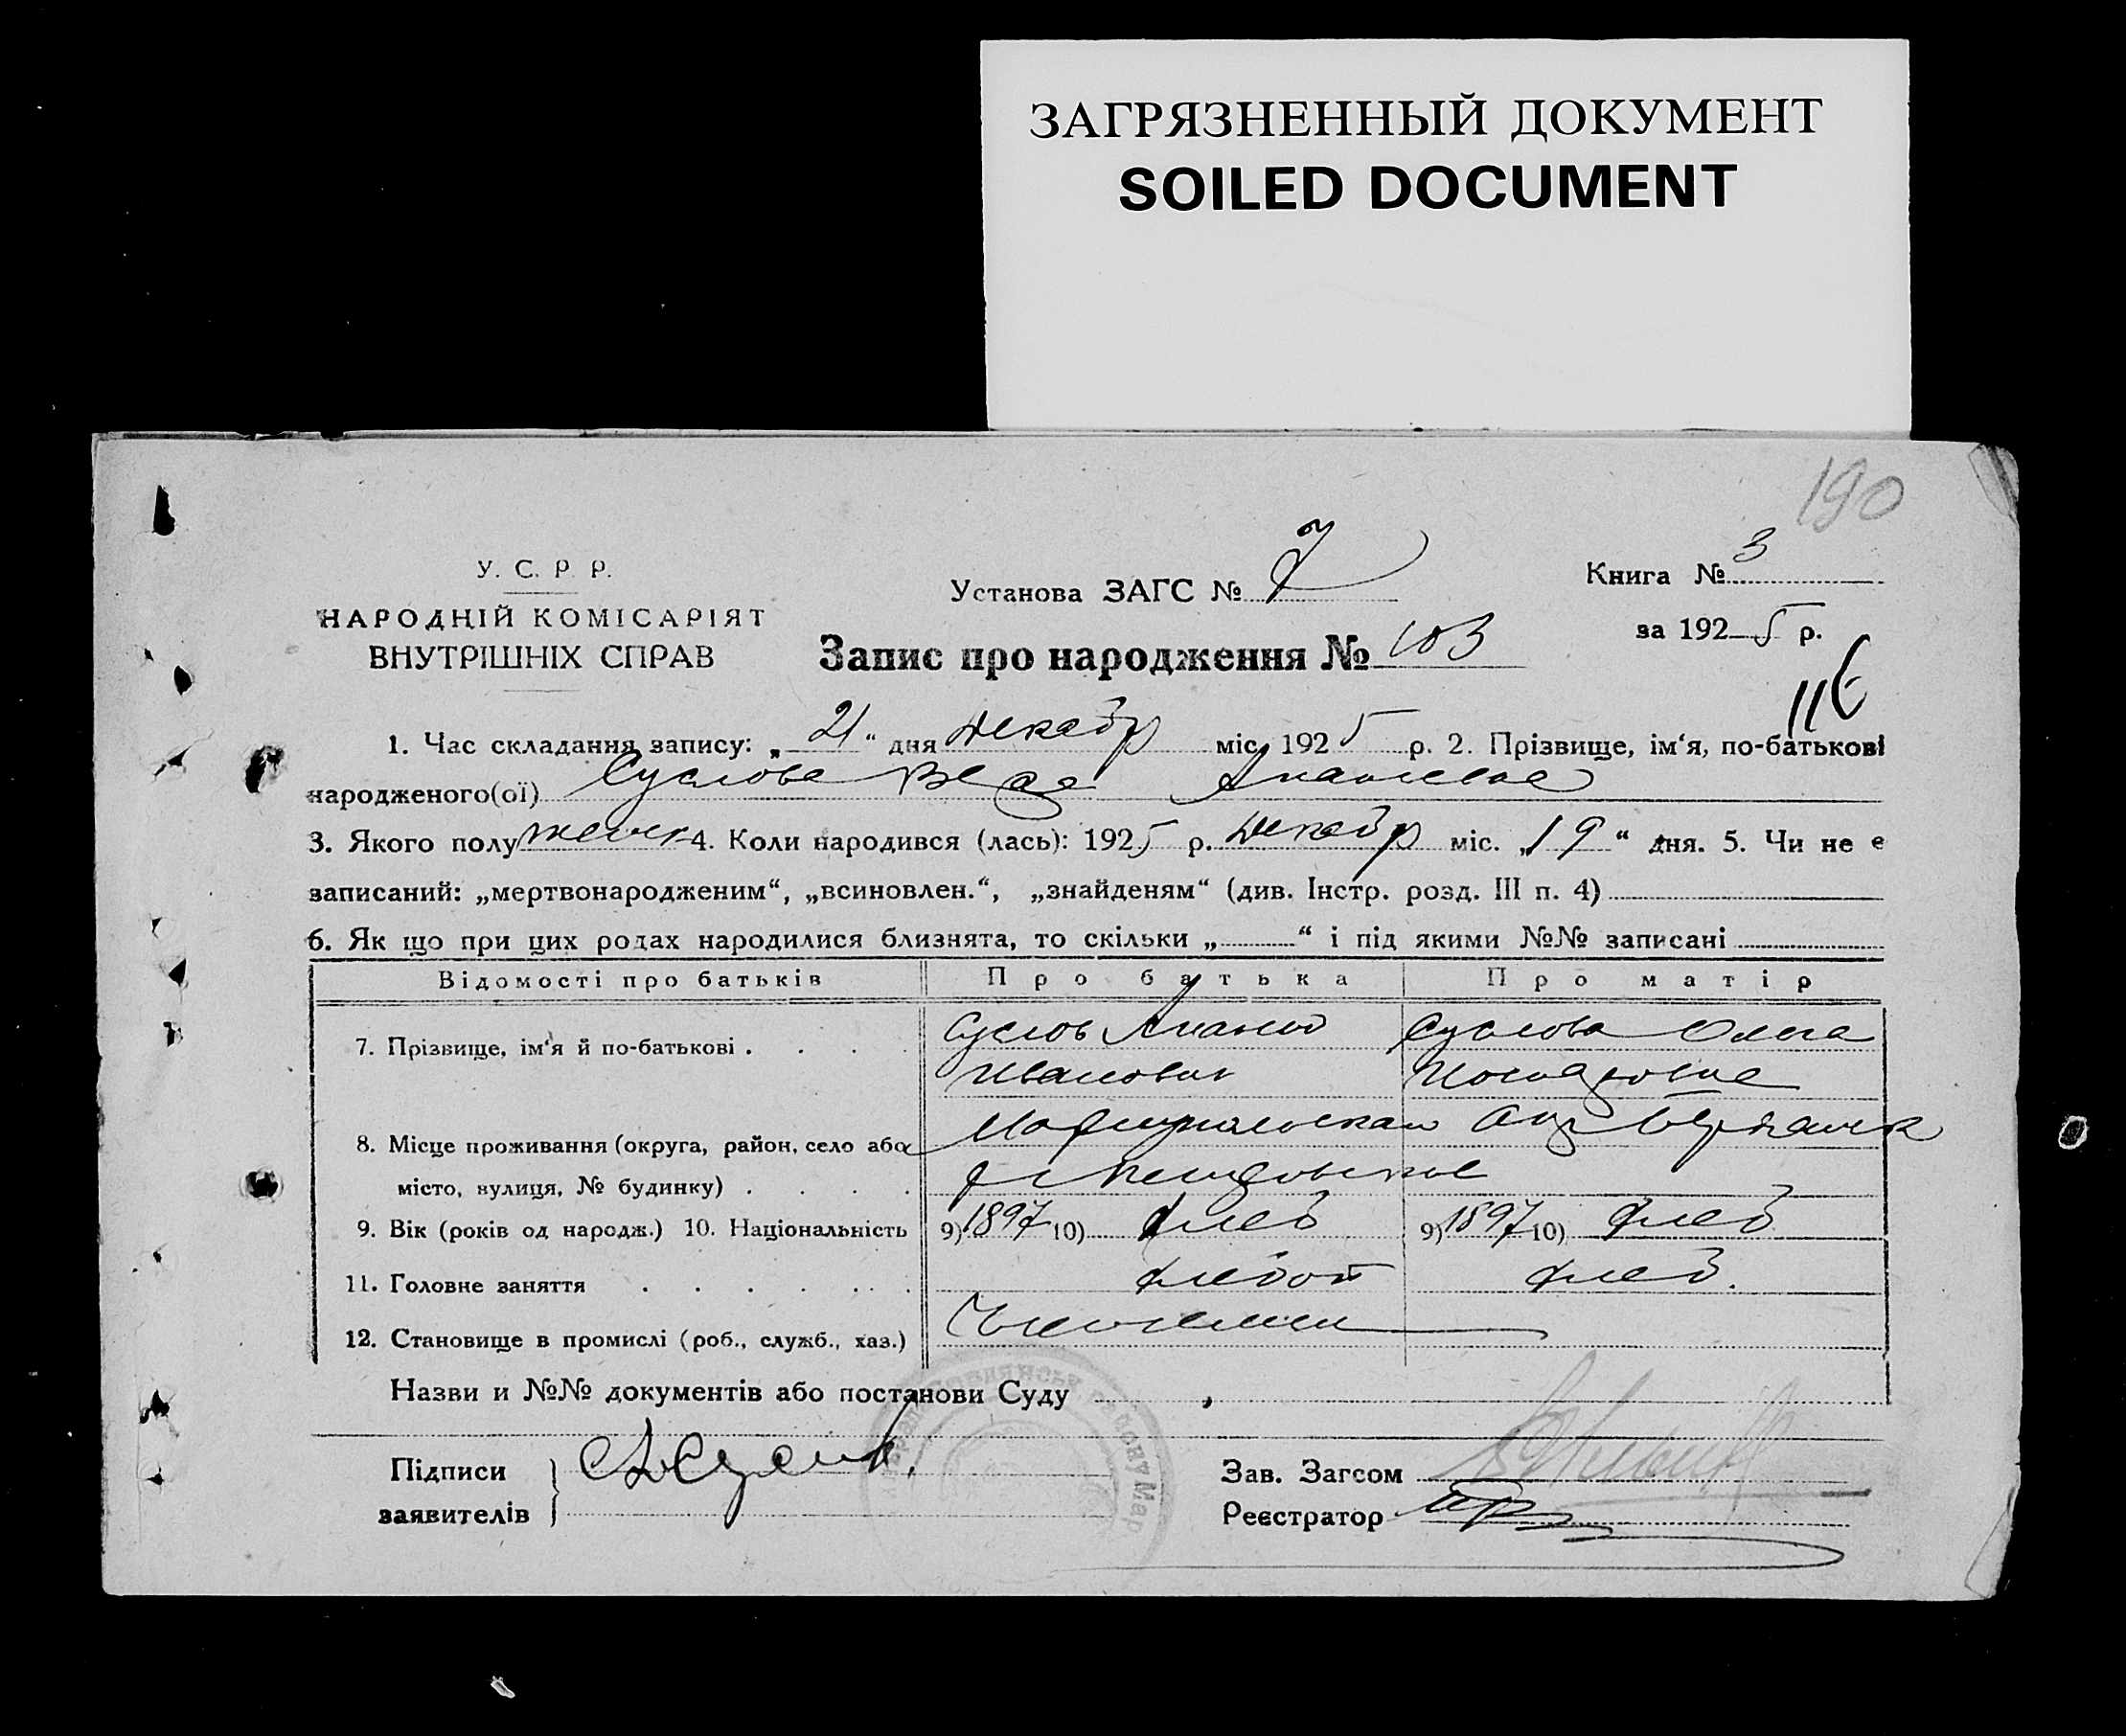 ЗАГРЯЗНЕННЫЙ ДОКУМЕНТ
SOILED DOCUMENT
190
У. С. Р. Р.
НАРОДНІЙ КОМІСАРІЯТ
ВНУТРІШНІХ СПРАВ
Установа ЗАГС №
Книга № 3
за 1925 р.
Запис про народження № 103
116
1. Час складання запису: „21“ дня Декабр міс. 1925 р. 2. Прізвище, ім‘я, по-батькові
народженого(ої) Суслова Вера Ананиевна
3. Якого полу женск 4. Коли народився (лась): 1925 р. Декабр міс. „19“ дня. 5. Чи не є
записаний: „мертвонародженим“, „всиновлен.“, „знайденям“ (див. Інстр. розд. III п. 4)
6. Як що при цих родах народилися близнята, то скільки „ “ і під якими №№ записані
Відомості про батьків Про батька Про матір
7. Прізвище, ім‘я й по-батькові . . . . Суслов Ананий Суслова Ольга
Иванович
8. Місце проживання (округа, район, село або Мариупольская Окр
місто, вулиця, № будинку) . . . .
9. Вік (років од народж.) 10. Національність 9) 1897 10) 9) 1897 10)
11. Головне заняття . . . . . .
12. Становище в промислі (роб., служб., хаз.)
Назви и №№ документів або постанови Суду
Підписи
заявителів
Зав. Загсом
Реєстратор